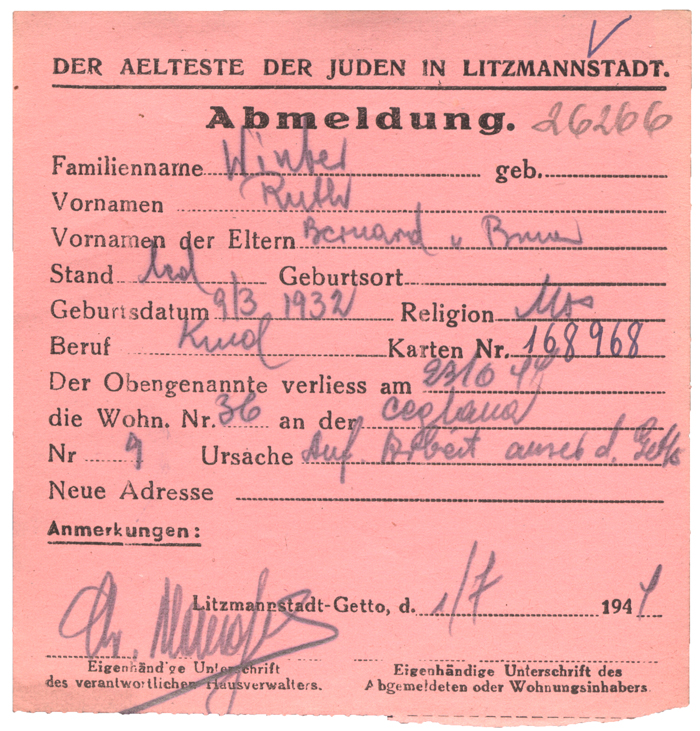 DER AELTESTE DER JUDEN IN LITZMANNSTADT.
Abmeldung. 26266
Familienname Winter geb.
Vornamen Ruth
Vornamen der Eltern Bernard u
Stand led Geburtsort
Geburtsdatum 9/3 1932 Religion Mos
Beruf Kind Karten Nr. 168968
Der Obengenannte verliess am 23/6 44
die Wohn. Nr. 36 an der
Nr 9 Ursache Auf Arbeit ausser d. Getto
Neue Adresse
Anmerkungen:
Litzmannstadt-Getto, d. 1/7 1944
Eigenhändige Unterschrift
des verantwortlichen Hausverwalters.
Eigenhändige Unterschrift des
Abgemeldeten oder Wohnungsinhabers